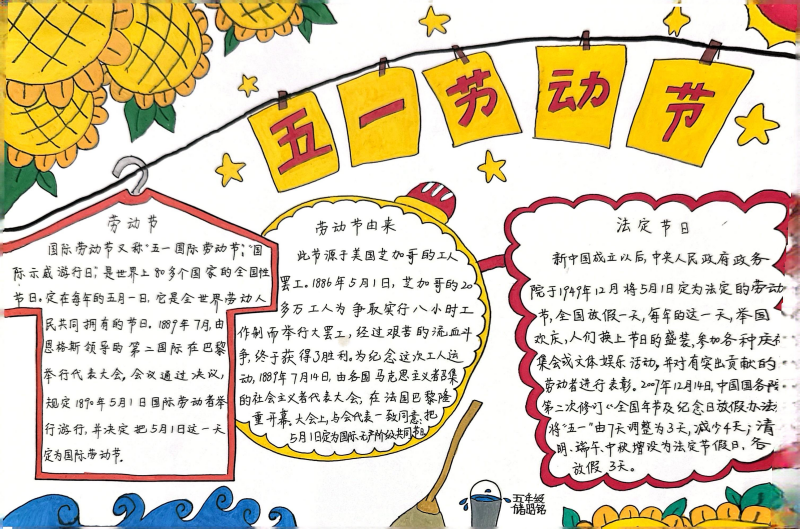 五一劳动节
劳动节
国际劳动节又称"五一国际劳动节","国
际示威游行日",是世界上80多个国家的全国性
节日。定在每年的五月一日。它是全世界劳动人
民共同拥有的节日。1889年7月,由
恩格斯领导的第二国际在巴黎
举行代表大会。会议通过决议,
规定1890年5月1日国际劳动者举
行游行,并决定把5月1日这一天
定为国际劳动节.
劳动节由来
此节源于美国芝加哥的工人
罢工。1886年5月1日,芝加哥的20
多万工人为争取实行八小时工
作制而举行大罢工,经过艰苦的流血斗
争,终于获得了胜利。为纪念这次工人运
动,1889年7月14日,由各国马克思主义者召集
的社会主义者代表大会,在法国巴黎隆
重开幕。大会上,与会代表一致同意:把
5月1日定为国际无产阶级共同节日
法定节日
新中国成立以后,中央人民政府政务
院于1949年12月将5月1日定为法定的劳动
节,全国放假一天,每年的这一天,举国
欢庆,人们换上节日的盛装,参加各种庆
集会或文体娱乐活动,并对有突出贡献的
劳动者进行表彰。2007年12月14日,中国国务院
第二次修订《全国年节及纪念日放假办法
将"五一"由7天调整为3天,减少4天;清
明、端午、中秋增设为法定节假日,各
放假3天。
五年级